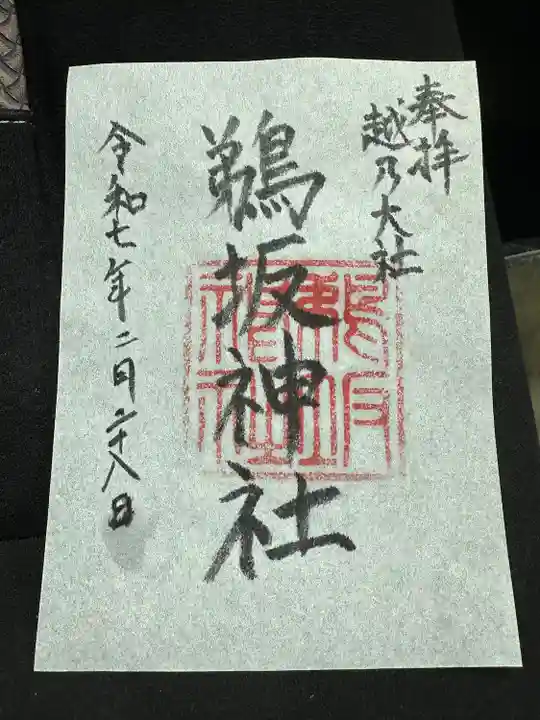 奉拝
越乃大社
鵜坂神社
令和七年二月二十八日
鵜坂
神社